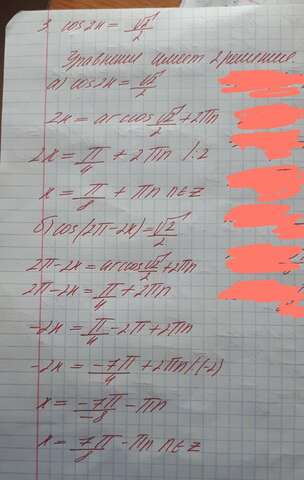 3. cos2x = √2/2
Уравнение имеет 2 решение.
а) cos2x = √2/2
2x = arccos √2/2 + 2πn
2x = π/4 + 2πn /:2
x = π/8 + πn n∈z
б) cos(2π-2x) = √2/2
2π-2x = arccos √2/2 + 2πn
2π-2x = π/4 + 2πn
-2x = π/4 - 2π + 2πn
-2x = -7π/4 + 2πn /:(-2)
x = -7π/-8 - πn
x = 7π/8 - πn n∈z